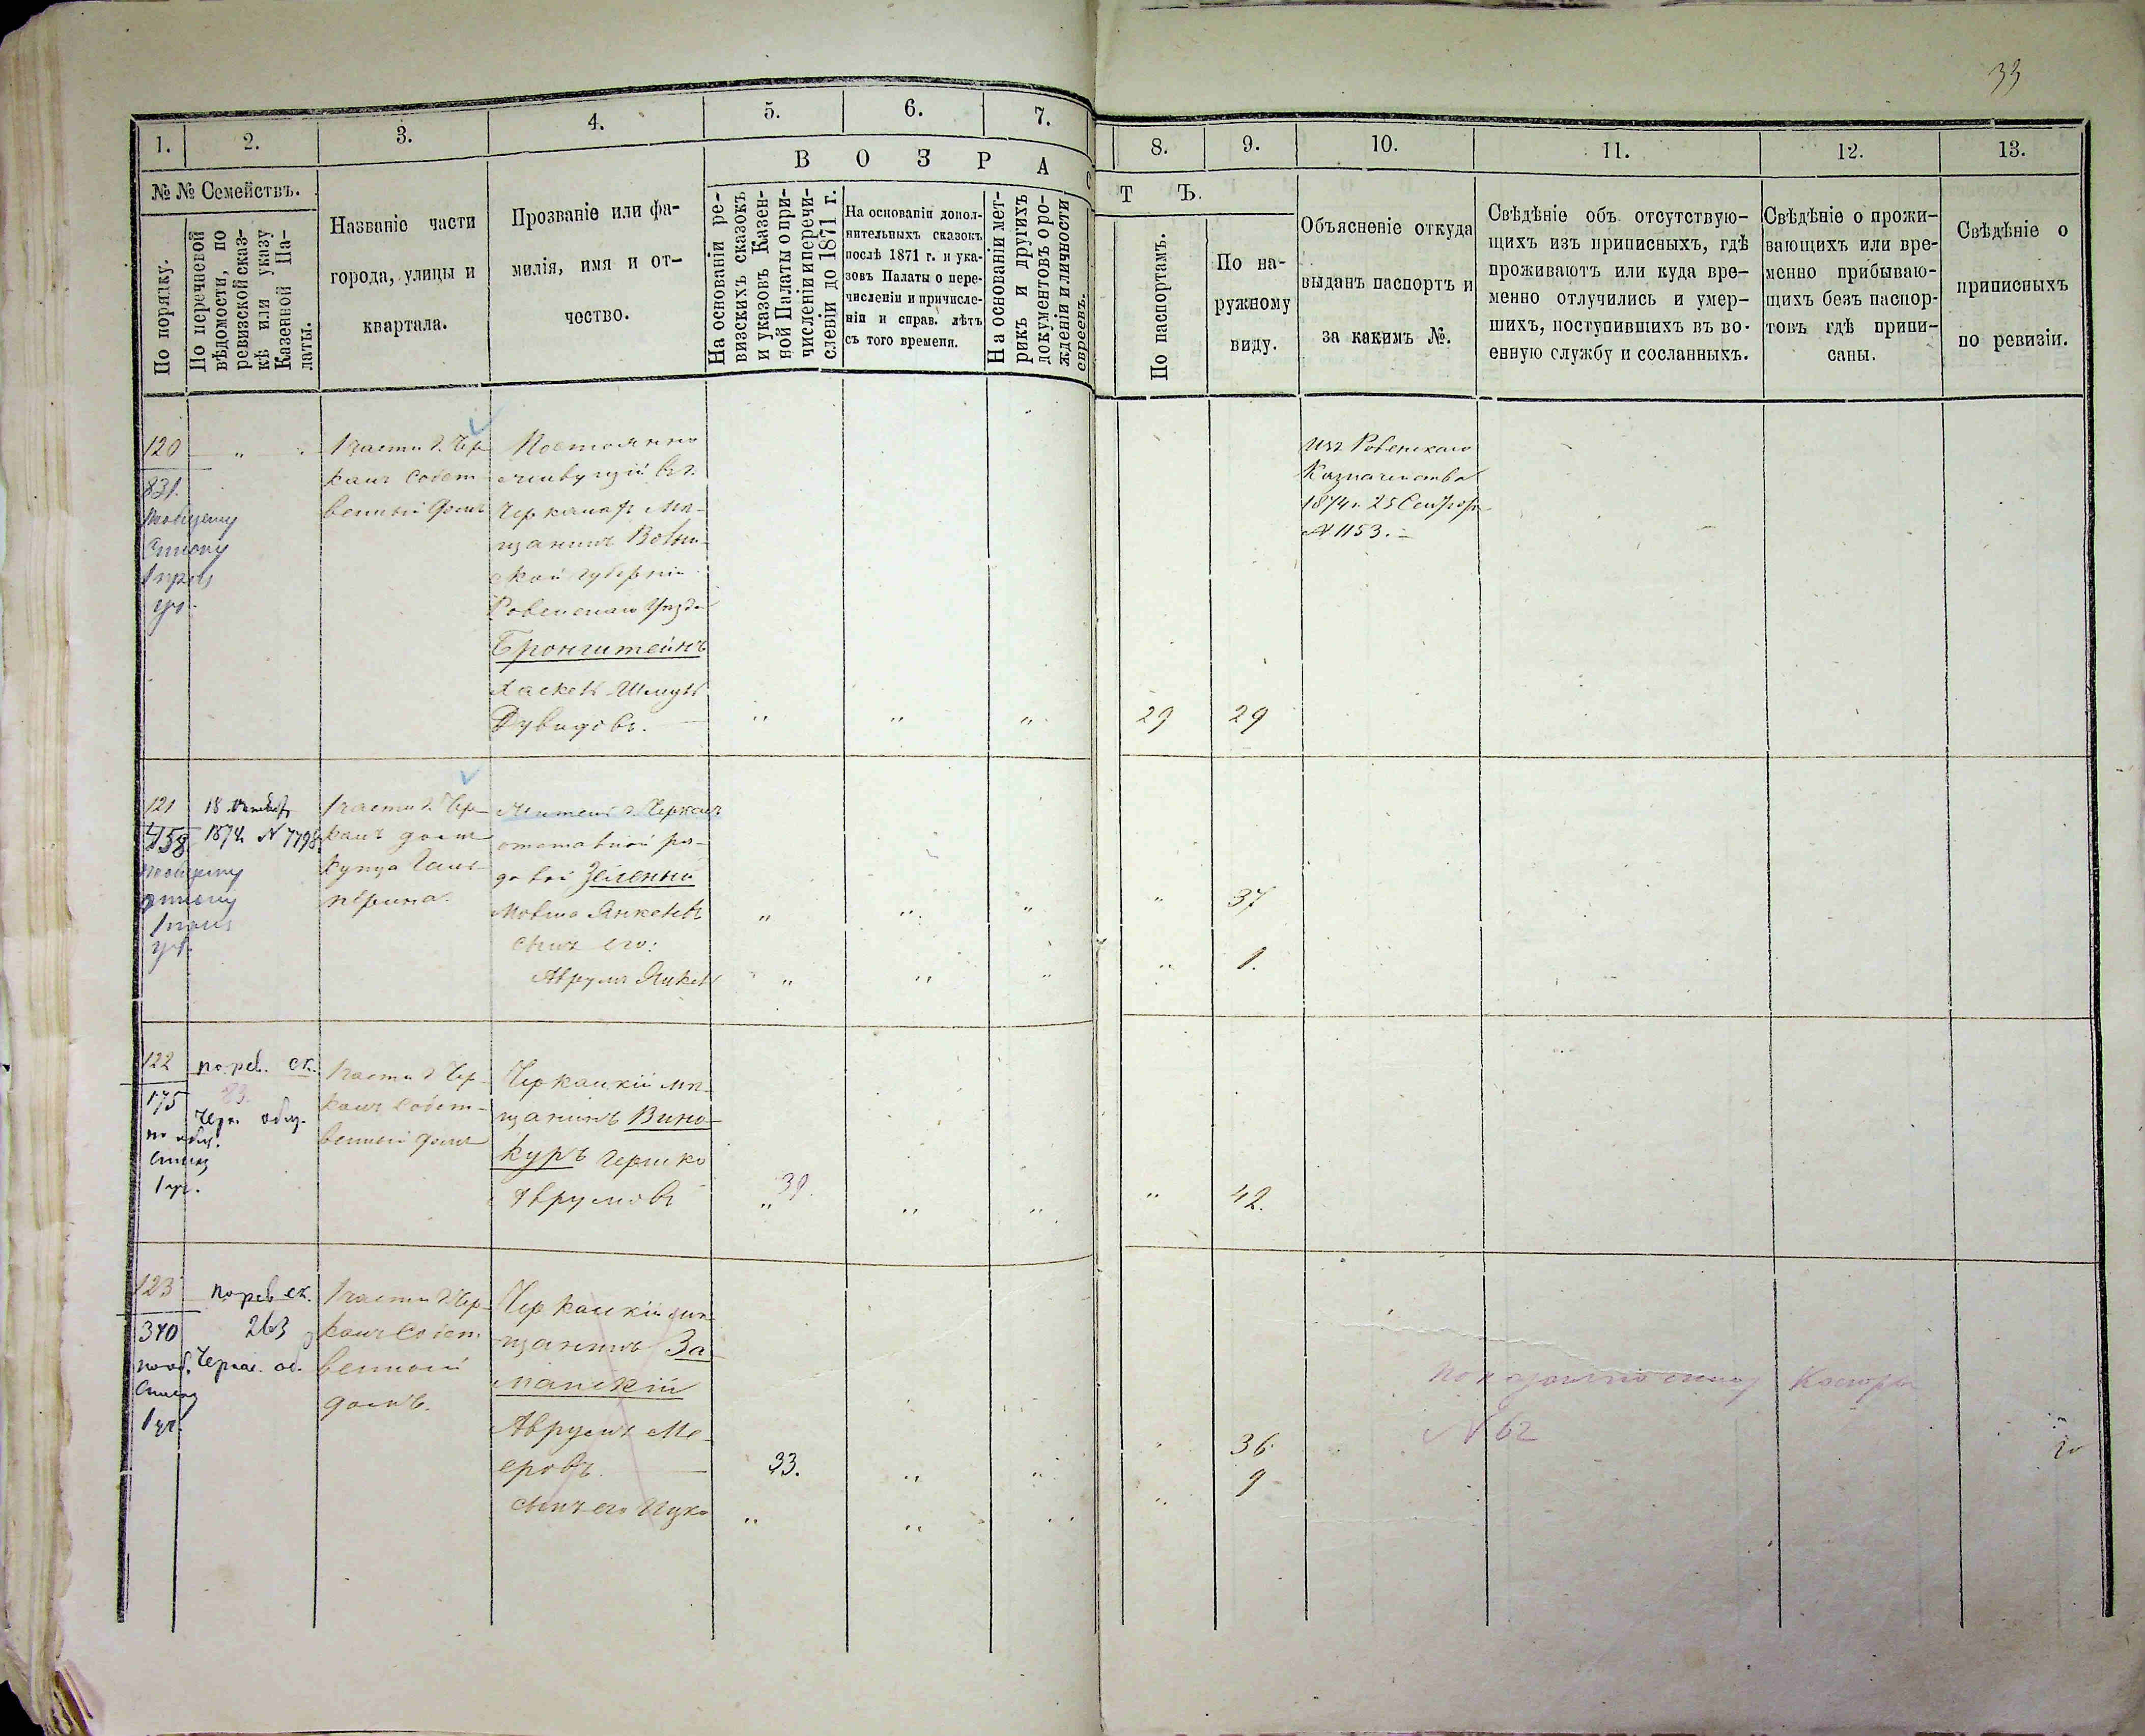 33
1. 2. 3. 4. 5. 6. 7. 8. 9. 10. 11. 12. 13.
№ № Семействъ.
По порядку.
По перечневой
вѣдомости, по
ревизской сказ-
кѣ или указу
Казенной Па-
латы.
Названіе части
города, улицы и
квартала.
Прозваніе или фа-
милія, имя и от-
чество.
ВОЗРАСТЪ.
На основаніи ре-
визскихъ сказокъ
и указовъ Казен-
ной Палаты о при-
численіи и перечи-
сленіи до 1871 г.
На основаніи допол-
нительныхъ сказокъ
послѣ 1871 г. и ука-
зовъ Палаты о пере-
численіи и причисле-
ніи и справ. лѣтъ
съ того времени.
На основаніи мет-
рикъ и другихъ
документовъ о ро-
жденіи и личности
евреевъ.
По паспортамъ.
По на-
ружному
виду.
Объясненіе откуда
выданъ паспортъ и
за какимъ №.
Свѣдѣніе объ отсутствую-
щихъ изъ приписныхъ, гдѣ
проживаютъ или куда вре-
менно отлучились и умер-
шихъ, поступившихъ въ во-
енную службу и сосланныхъ.
Свѣдѣніе о прожи-
вающихъ или вре-
менно прибываю-
щихъ безъ паспор-
товъ гдѣ припи-
саны.
Свѣдѣніе о
приписныхъ
по ревизіи.
120
831.
1 части г. Чер
касъ собст
венный домъ
Постоянно
живущій въ г.
Черкасахъ мѣ-
щанинъ Волын-
ской губерніи
Ровенскаго Уѣзда
Бронштейнъ
Хаскель Шмуль
Дувидовъ.
" " " 29 29
Изъ Ровенскаго
Казначейства
1874 г. 25 Сентября
№ 1153.
121
458
18
1874 № 7798
1 части г. Чер-
касъ домъ
купца Галь-
перина.
Житель г. Черкасъ
отставной ря-
довой Зеленый
Мовша Янкелевъ
" " " " 37
сынъ его:
Аврумъ Янкель
" " " " 1.
122
175
по об.
списку
1 уч.
по рев. ск.
83.
Черк. общ.
1 части г. Чер-
касъ собст-
венный домъ
Черкаскій мѣ-
щанинъ Вино-
куръ Гершко
Аврумовъ
39. " " " 42.
123
340
по об.
списку
1 уч.
по рев. ск.
263
Черкас. об.
1 части г. Чер-
касъ собст
венный
домъ.
Черкаскій мѣ-
щанинъ За
манскій
Аврумъ Ме-
еровъ
33. " " " 36.
сынъ его Ицко
" " " " 9
№ 62